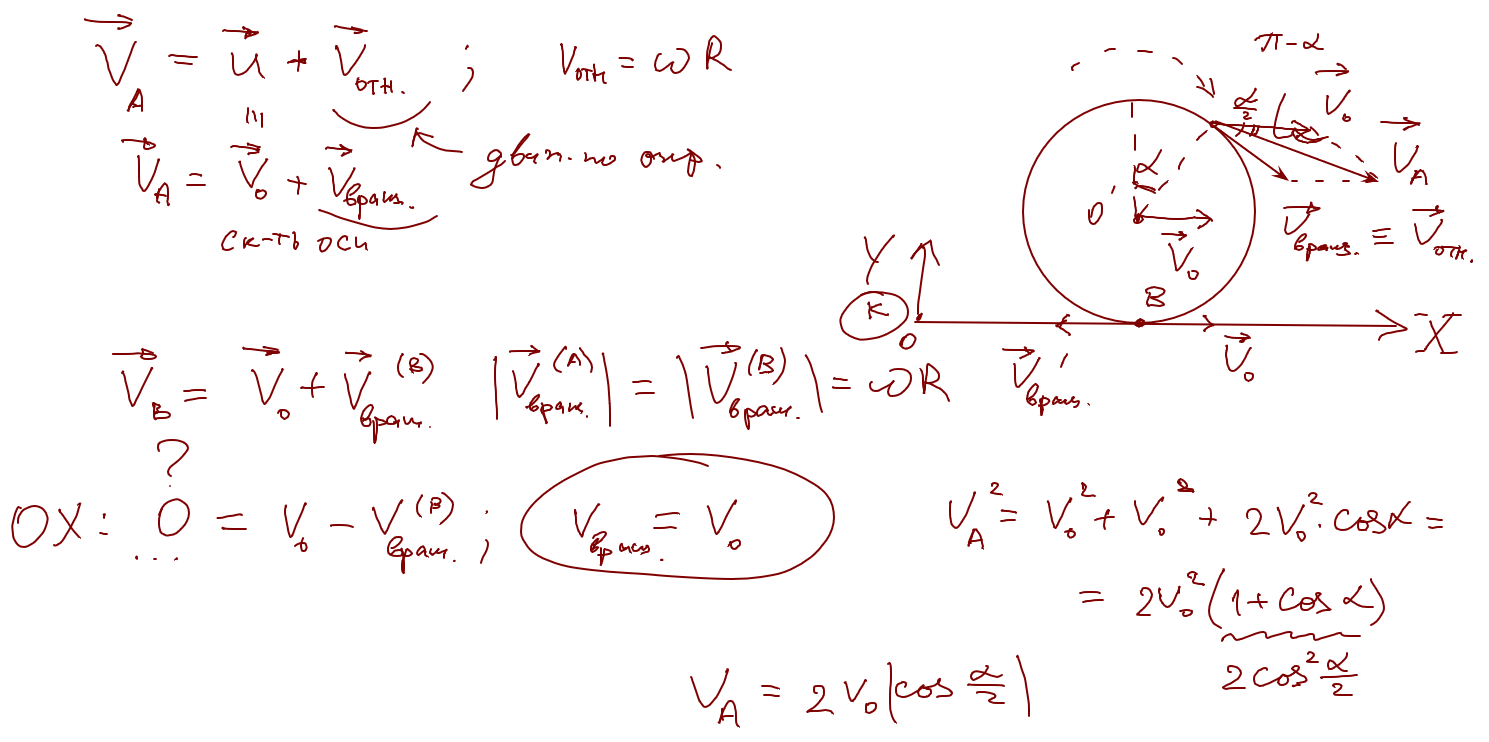 V⃗_A = u⃗ + V⃗_отн. ; V_отн = ωR
≡
V⃗_A = V⃗_0 + V⃗_вращ. ← движ. по окр.
ск-ть оси
π-α
α/2 α V⃗_0
V⃗_A
α
O' V⃗_0
V⃗_вращ. ≡ V⃗_отн.
Y
K
O B X
V⃗'_вращ. V⃗_0
V⃗_B = V⃗_0 + V⃗_вращ.^(B) |V⃗_вращ.^(A)| = |V⃗_вращ.^(B)| = ωR
?
OX: 0 = V_0 - V_вращ.^(B) ; V_вращ. = V_0
...
V_A^2 = V_0^2 + V_0^2 + 2V_0^2·cosα =
= 2V_0^2(1+cosα)
2cos^2 α/2
V_A = 2V_0|cos α/2|